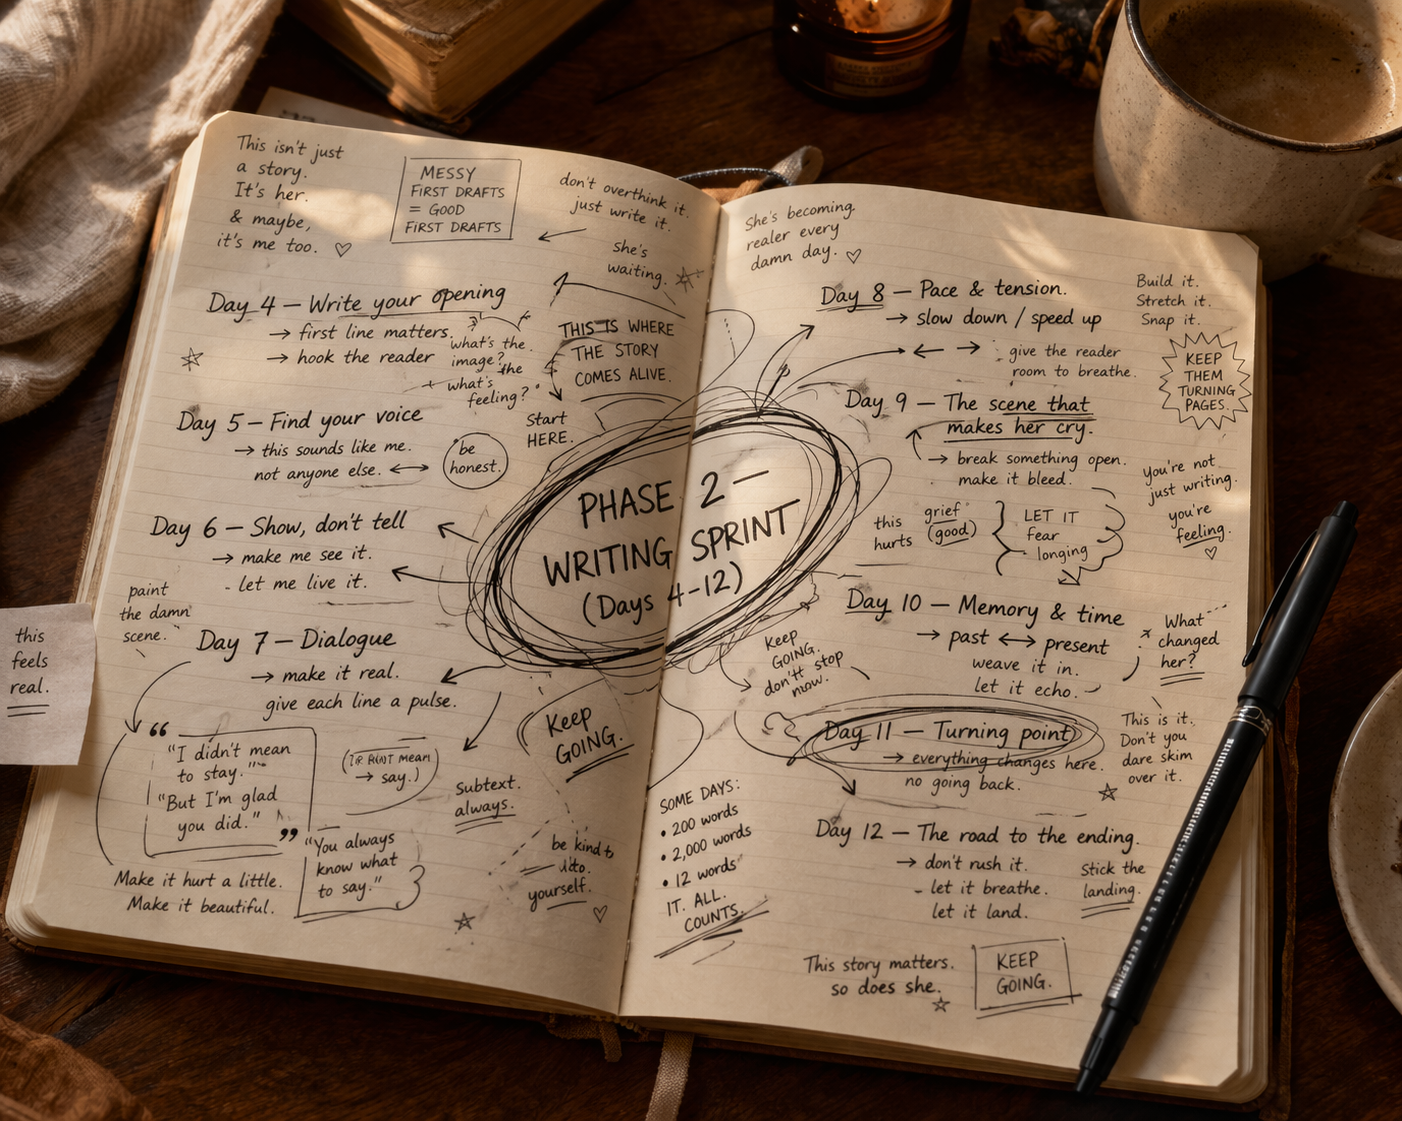 This isn't just
a story.
It's her.
& maybe,
it's me too. ♡
MESSY
FIRST DRAFTS
= GOOD
FIRST DRAFTS
don't overthink it.
just write it.
she's
waiting.
Day 4 — Write your opening
→ first line matters.
→ hook the reader
what's the
image?
the
what's
feeling?
THIS IS WHERE
THE STORY
COMES ALIVE.
Start
HERE.
Day 5 — Find your voice
→ this sounds like me.
not anyone else.
be
honest.
Day 6 — Show, don't tell
→ make me see it.
- let me live it.
paint
the damn
scene.
this
feels
real.
Day 7 — Dialogue
→ make it real.
give each line a pulse.
"
"I didn't mean
to stay."
"But I'm glad
you did."
"
mean
→ say.)
"You always
know what
to say."
Subtext.
always.
Make it hurt a little.
Make it beautiful.
Keep
GOING.
be kind to
yourself.
♡
PHASE 2 —
WRITING SPRINT
(Days 4-12)
She's becoming
realer every
damn day. ♡
Day 8 — Pace & tension.
→ slow down / speed up
give the reader
room to breathe.
Build it.
Stretch it.
Snap it.
KEEP
THEM
TURNING
PAGES.
Day 9 — The scene that
makes her cry.
→ break something open.
make it bleed.
this
hurts
grief
(good)
LET IT
fear
longing
you're not
just writing.
you're
feeling.
♡
Day 10 — Memory & time
→ past ↔ present
weave it in.
let it echo.
What
changed
her?
Keep
GOING.
don't stop
now.
Day 11 — Turning point
→ everything changes here.
no going back.
This is it.
Don't you
dare skim
over it.
SOME DAYS:
• 200 words
• 2,000 words
• 12 words
IT. ALL.
COUNTS.
Day 12 — The road to the ending.
→ don't rush it.
- let it breathe.
let it land.
Stick the
landing.
This story matters.
so does she.
KEEP
GOING.